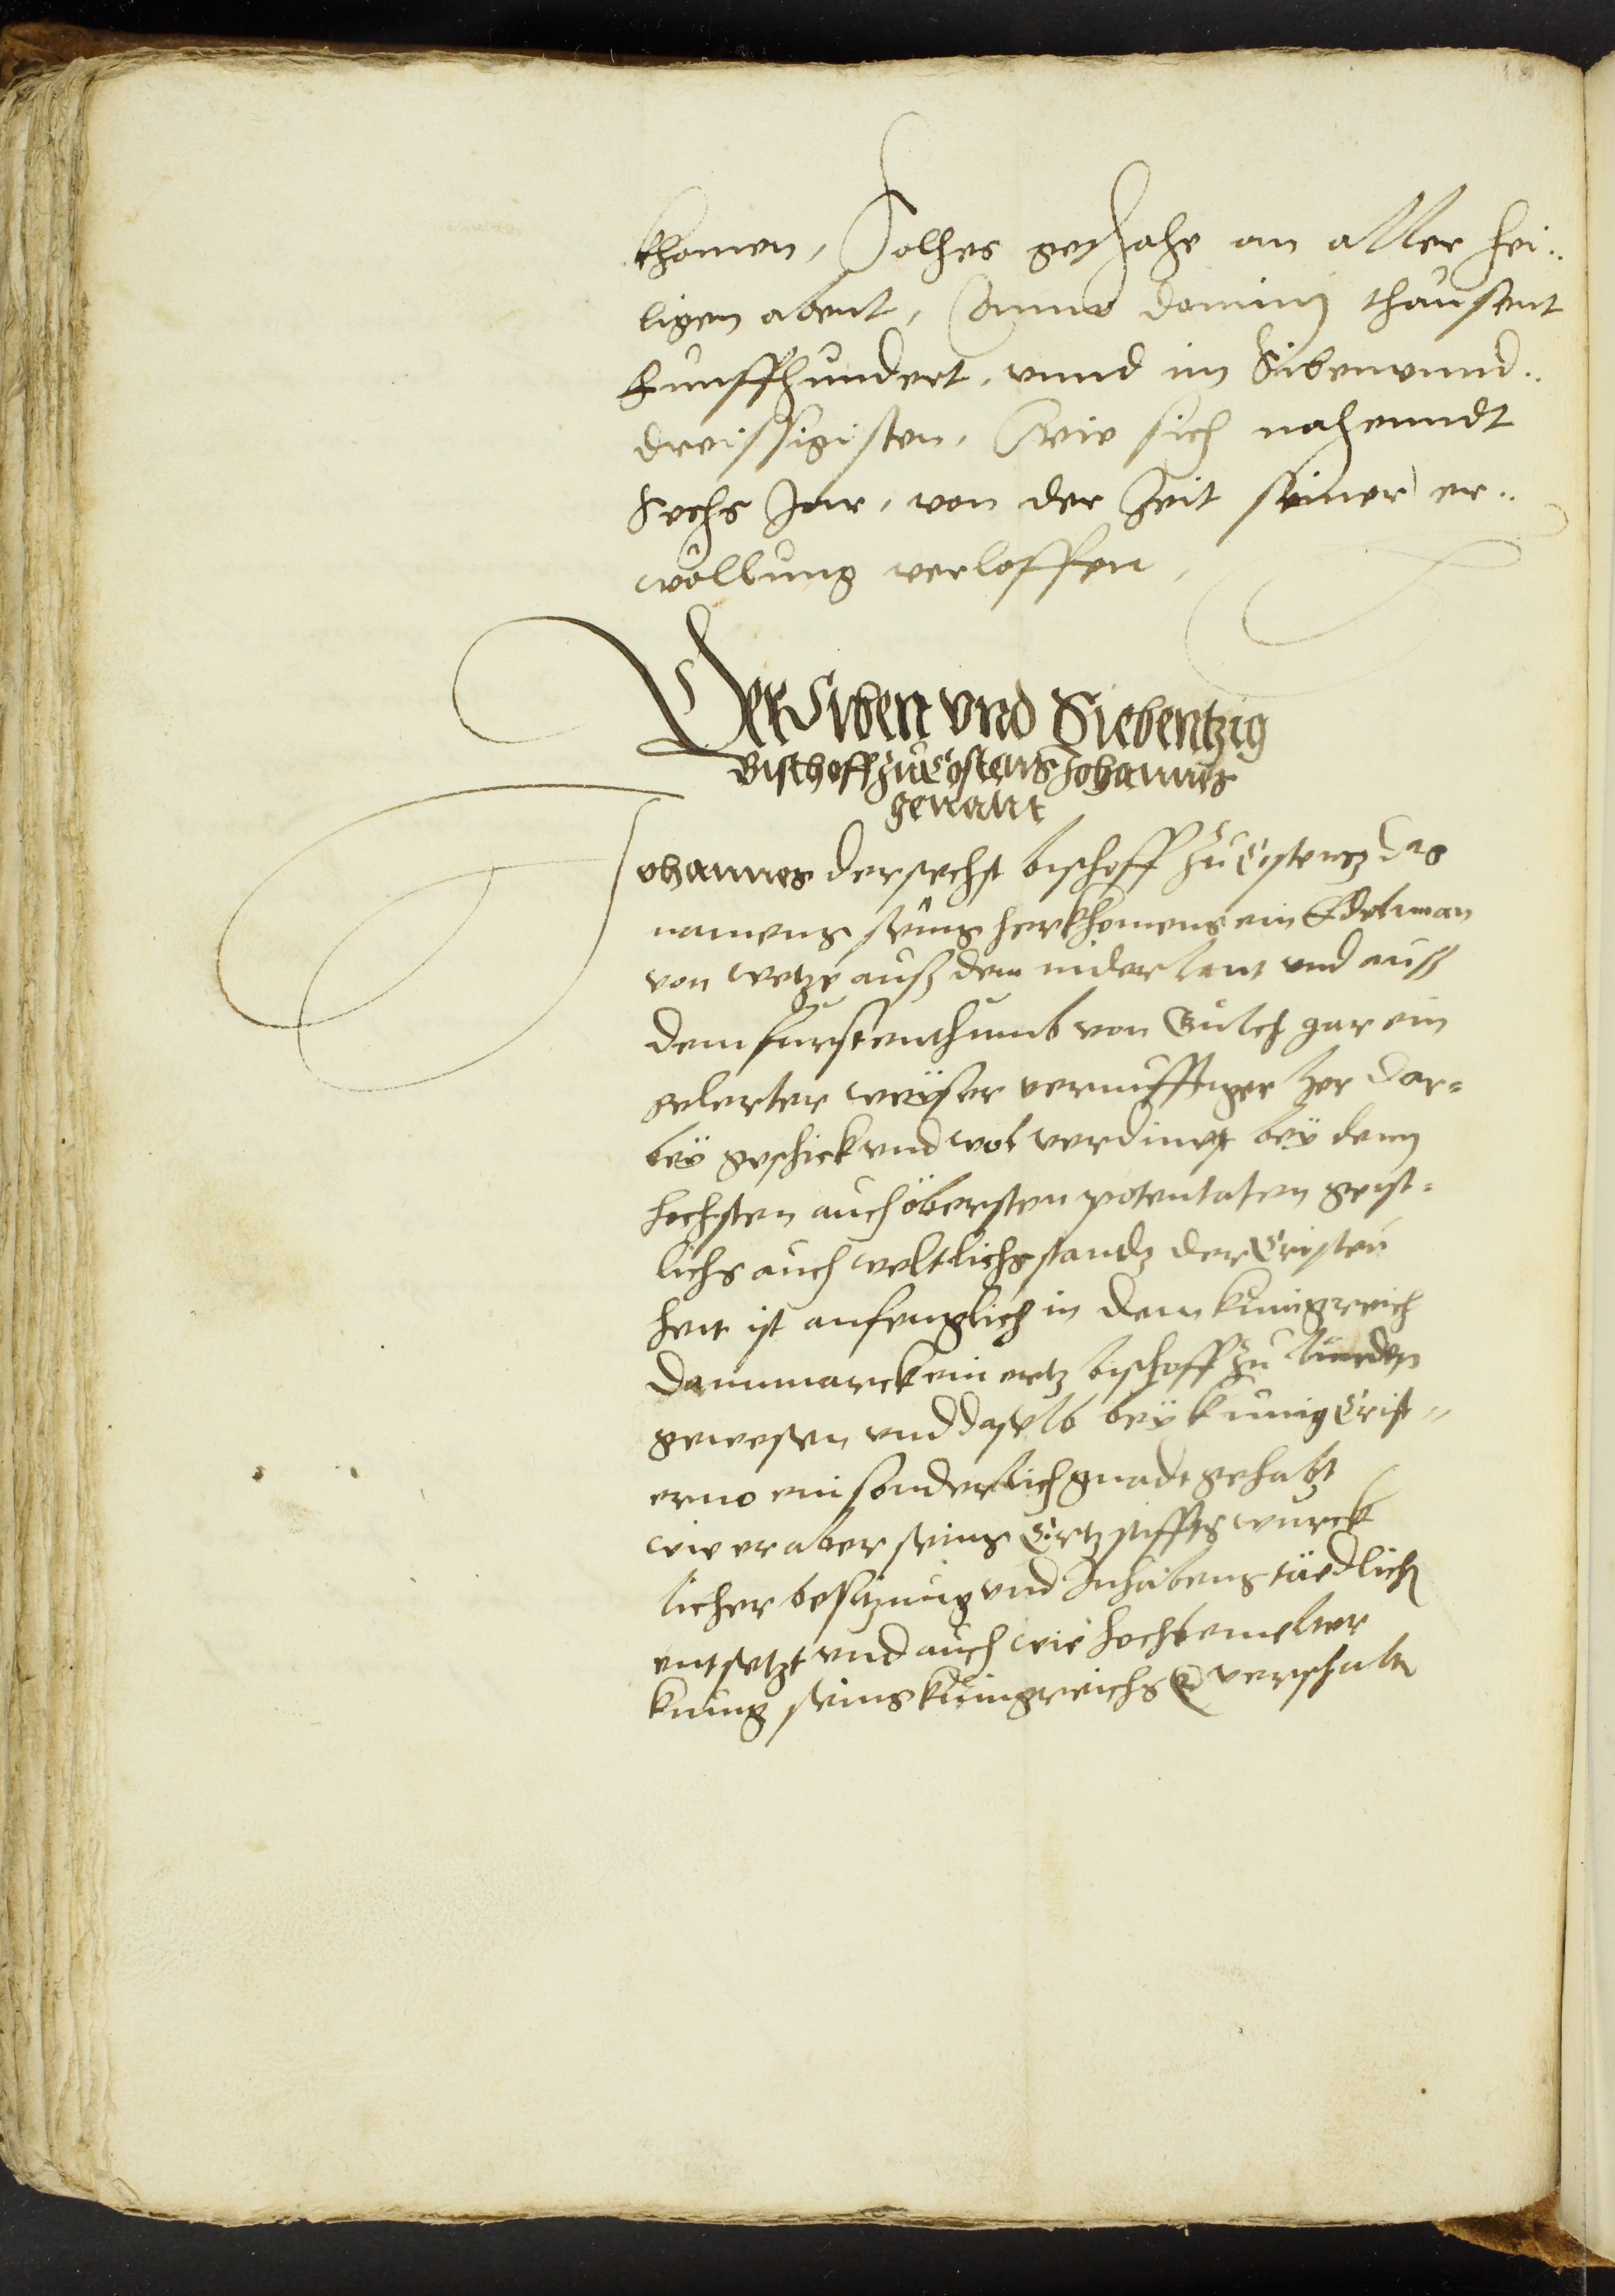 khomen, Solhes geschahe an aller hei..
ligen abent, Anno dominj thausent
funffhundert, vnnd im Sibenvnnd..
dreissigisten, Wie sich nahenndt
Sechs Jar, von der Zeit seiner er..
wöllung verloffen,
Der Siben vnd Siebentzig
Bischoff zu Costens Johannes
genant
Johannes der sechst bischoff zu Costentz das
namens seins herkhomens ein Edelman
von wetze auß dem niderlant vnd auß
dem furstenthumb von Gulch gar ein
gelerter weyser vernufftiger her dar=
bey geschickt vnd wol verdinet bey denen
hochsten auch öbersten potentaten geist=
lichs auch weltlichs standz der Cristen
heit ist anfenglich in dem kunigreich
Dennmarck ein ertz bischoff zu lunden
gewesen vnd daselb bey kunig Crist=
erno ein sonderlich gnadt gehabt
wie er aber seins Ertzstiffts wurck
licher besitzung vnd Inhabens tädlich
entsetzt vnd auch wie hochbemelter
kunig seins kunigreichs verschalten